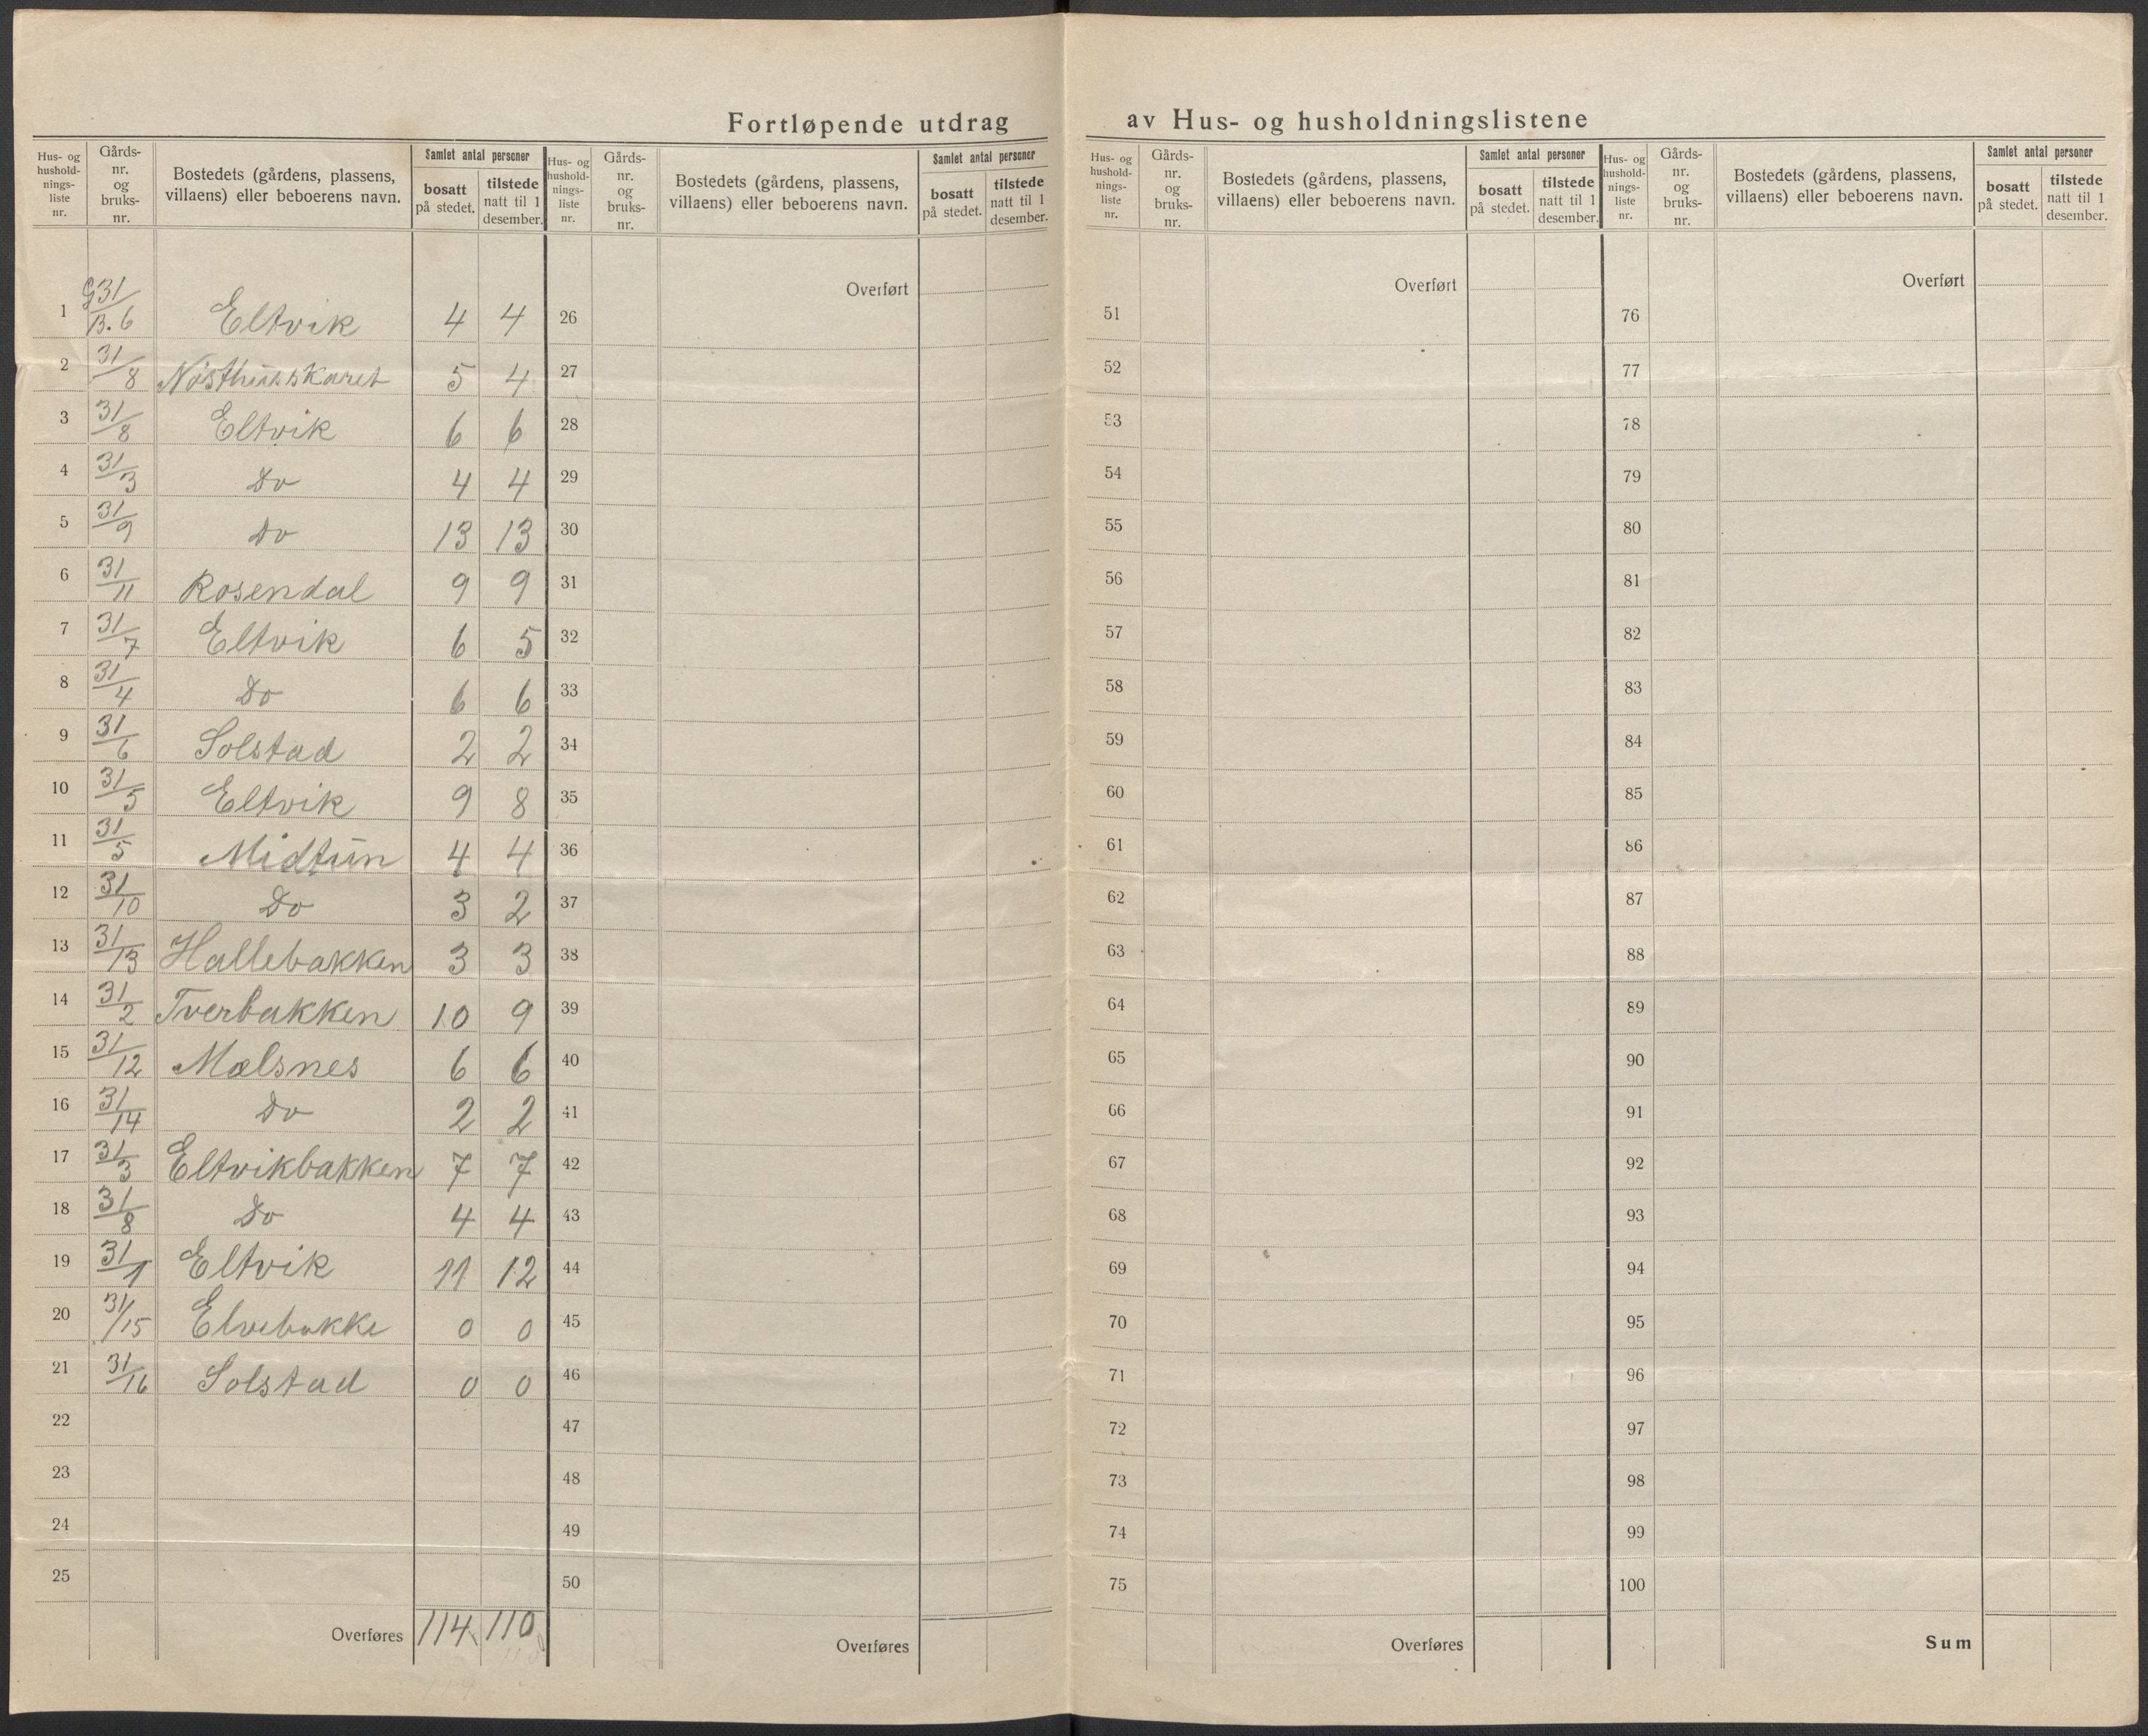 Fortløpende utdrag av Hus- og husholdningslistene
Hus- og hushold-nings-liste nr. Gårds-nr. og bruks-nr. Bostedets (gårdens, plassens, villaens) eller beboerens navn. Samlet antal personer bosatt på stedet. tilstede natt til 1 desember.
Hus- og hushold-nings-liste nr. Gårds-nr. og bruks-nr. Bostedets (gårdens, plassens, villaens) eller beboerens navn. Samlet antal personer bosatt på stedet. tilstede natt til 1 desember.
Hus- og hushold-nings-liste nr. Gårds-nr. og bruks-nr. Bostedets (gårdens, plassens, villaens) eller beboerens navn. Samlet antal personer bosatt på stedet. tilstede natt til 1 desember.
Hus- og hushold-nings-liste nr. Gårds-nr. og bruks-nr. Bostedets (gårdens, plassens, villaens) eller beboerens navn. Samlet antal personer bosatt på stedet. tilstede natt til 1 desember.
1 G31/B.6 Eltvik 4 4
2 31/8 Nøsthusskaret 5 4
3 31/8 Eltvik 6 6
4 31/3 Do 4 4
5 31/9 Do 13 13
6 31/11 Rosendal 9 9
7 31/7 Eltvik 6 5
8 31/4 Do 6 6
9 31/6 Solstad 2 2
10 31/5 Eltvik 9 8
11 31/5 Midtun 4 4
12 31/10 Do 3 2
13 31/13 Hallebakken 3 3
14 31/2 Tverbakken 10 9
15 31/12 Mælsnes 6 6
16 31/14 Do 2 2
17 31/3 Eltvikbakken 7 7
18 31/8 Do 4 4
19 31/1 Eltvik 11 12
20 31/15 Elvebakke 0 0
21 31/16 Solstad 0 0
22
23
24
25
Overføres 114 110
Overført
26
27
28
29
30
31
32
33
34
35
36
37
38
39
40
41
42
43
44
45
46
47
48
49
50
Overføres
Overført
51
52
53
54
55
56
57
58
59
60
61
62
63
64
65
66
67
68
69
70
71
72
73
74
75
Overføres
Overført
76
77
78
79
80
81
82
83
84
85
86
87
88
89
90
91
92
93
94
95
96
97
98
99
100
Sum